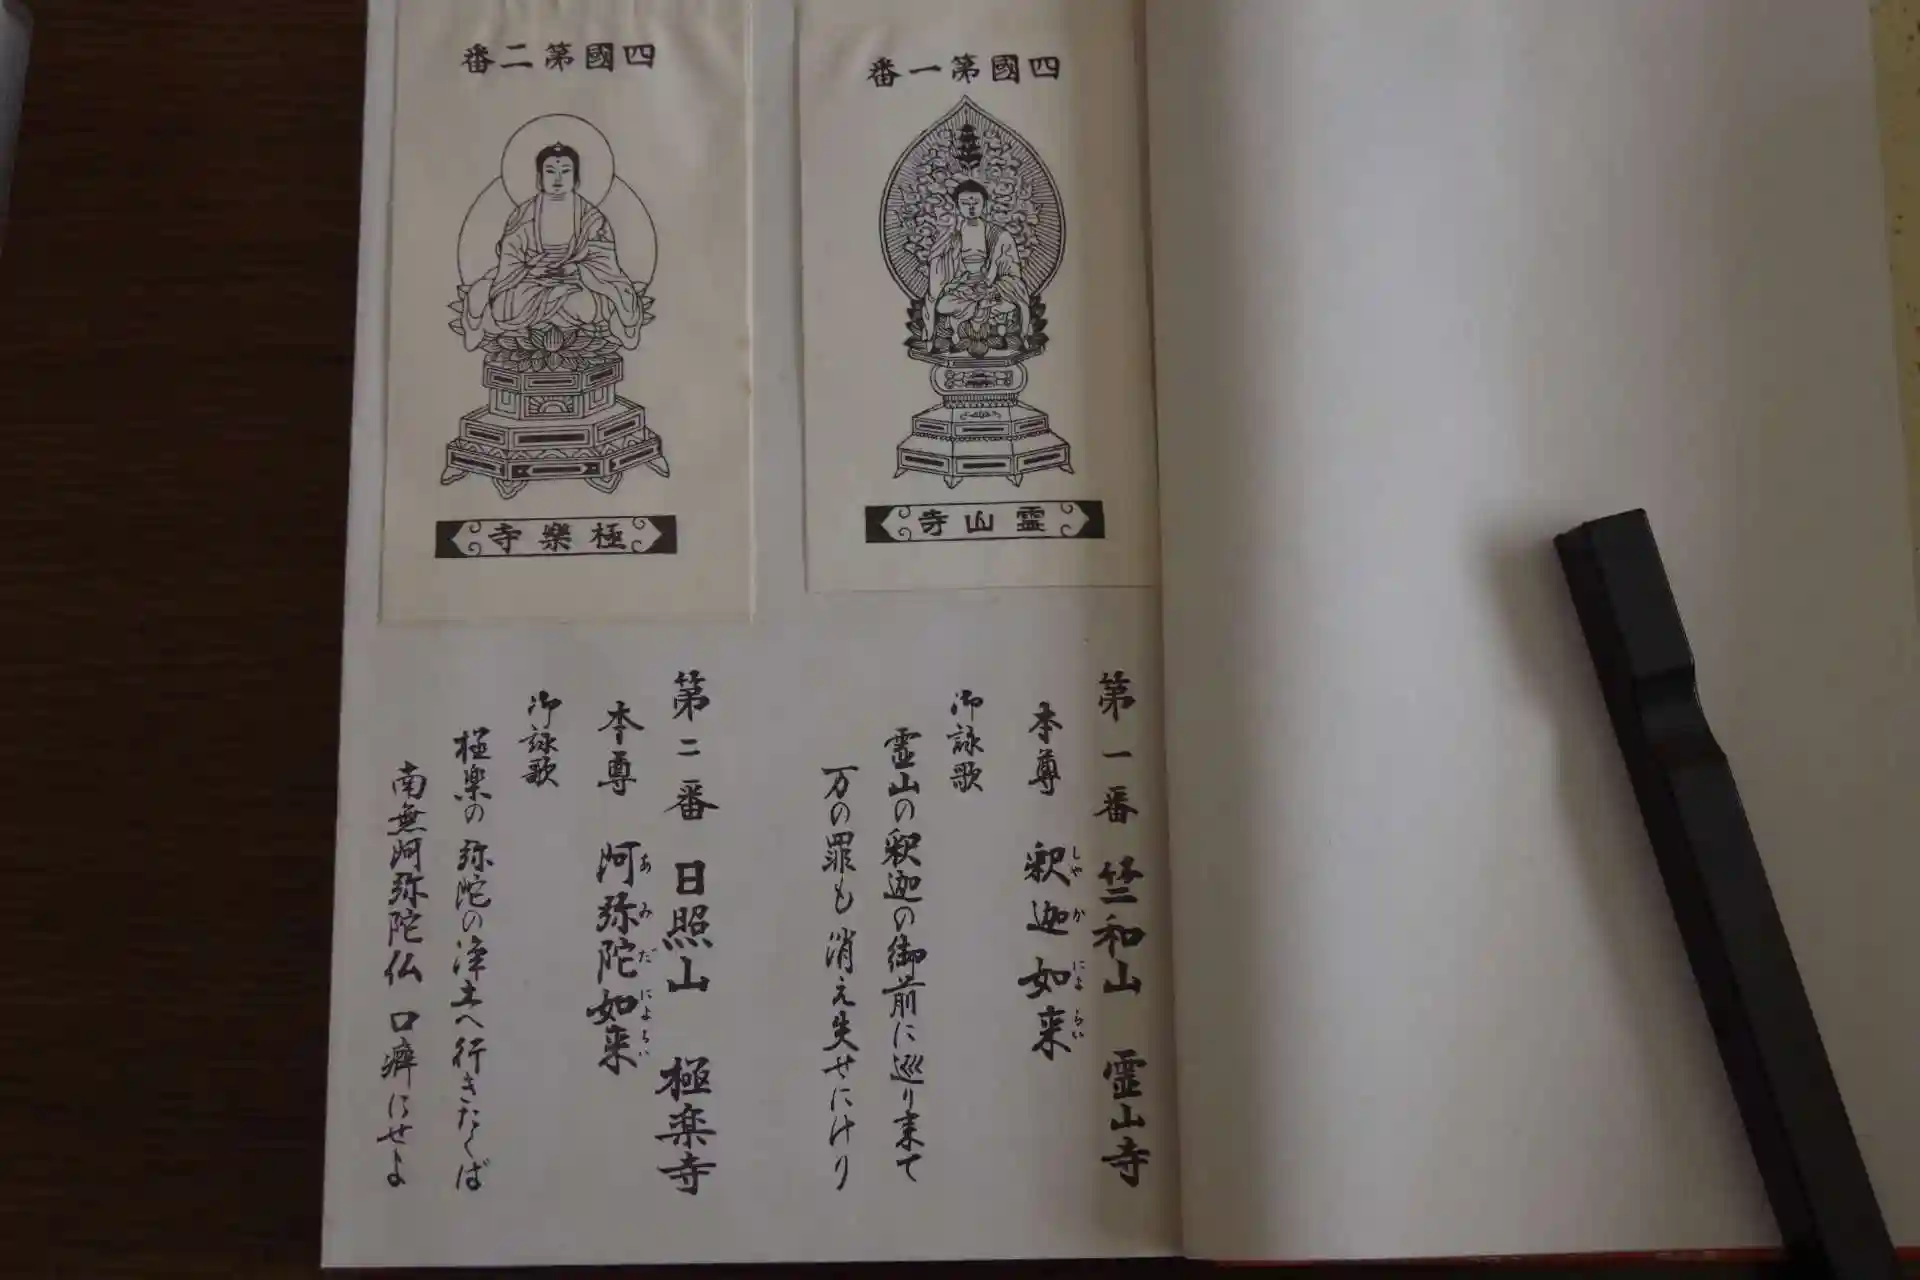 四國第一番
霊山寺
第一番 竺和山 霊山寺
本尊 釈迦如来
しゃかにょらい
御詠歌
霊山の釈迦の御前に巡り来て
万の罪も消え失せにけり
四國第二番
極樂寺
第二番 日照山 極楽寺
本尊 阿弥陀如来
あみだにょらい
御詠歌
極楽の弥陀の浄土へ行きたくば
南無阿弥陀仏 口癖にせよ